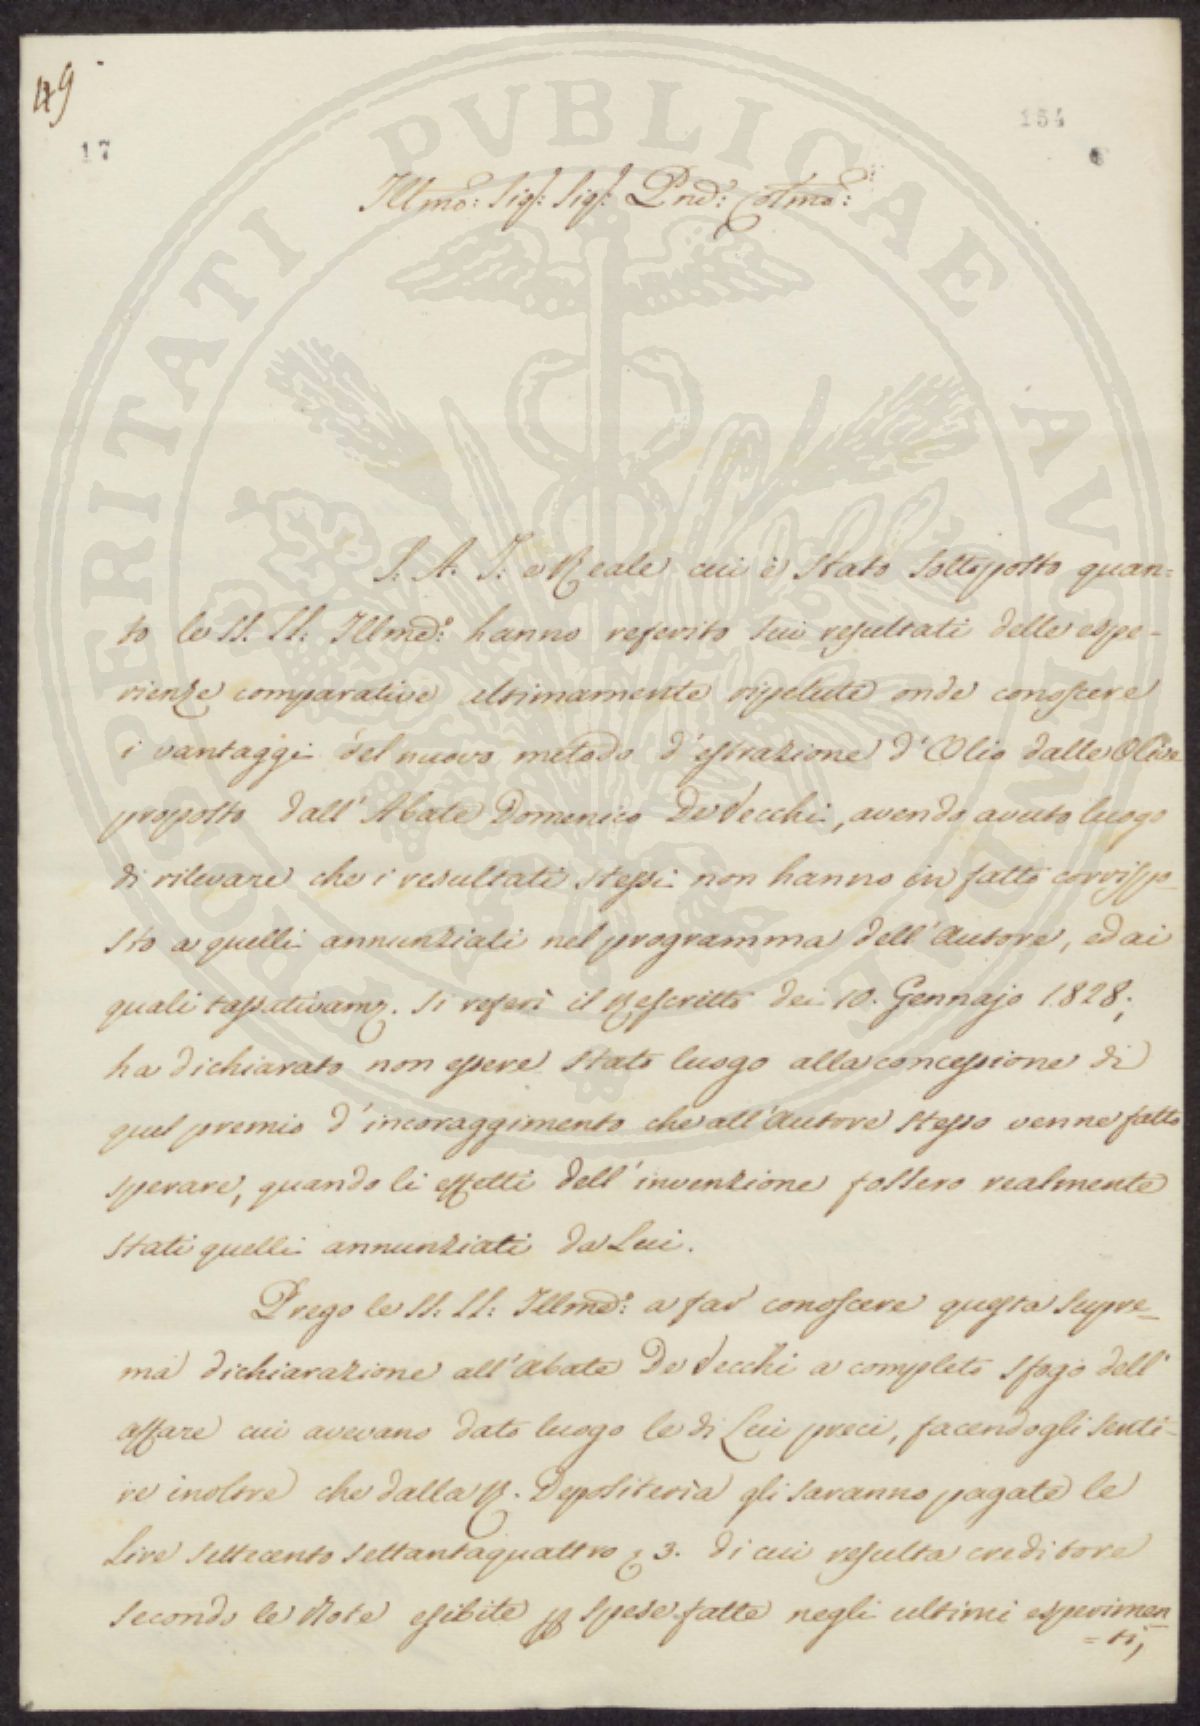 49
17
154
Illmo: Sigr: Sigr: Pnd: Colmo:
S. A. I. e Reale cui è stato sottoposto quan=
to le SS. LL: Illme: hanno referito sui resultati delle espe-
rienze comparative ultimamente ripetute onde conoscere
i vantaggi del nuovo metodo d'estrazione d'Olio dalle Olive
proposto dall'Abate Domenico De Vecchi, avendo avuto luogo
di rilevare che i resultati stessi non hanno in fatto corrispo-
sto a quelli annunziati nel programma dell'Autore, ed ai
quali tassativamte. si referì il Rescritto dei 10. Gennajo 1828;
ha dichiarato non essere stato luogo alla concessione di
quel premio d'incoraggimento che all'Autore stesso venne fatto
sperare, quando li effetti dell'invenzione fossero realmente
stati quelli annunziati da Lui.
Prego le SS. LL: Illme: a far conoscere questa supre-
ma dichiarazione all'Abate De Vecchi a completo sfogo dell'
affare cui avevano dato luogo le di Lui preci, facendogli senti-
re inoltre che dalla R. Depositeria gli saranno pagate le
Lire settecento settantaquattro e 3. di cui resulta creditore
secondo le Note esibite per spese fatte negli ultimi esperimen
=ti,
PROSPERITATI PVBLICAE AVGENDAE